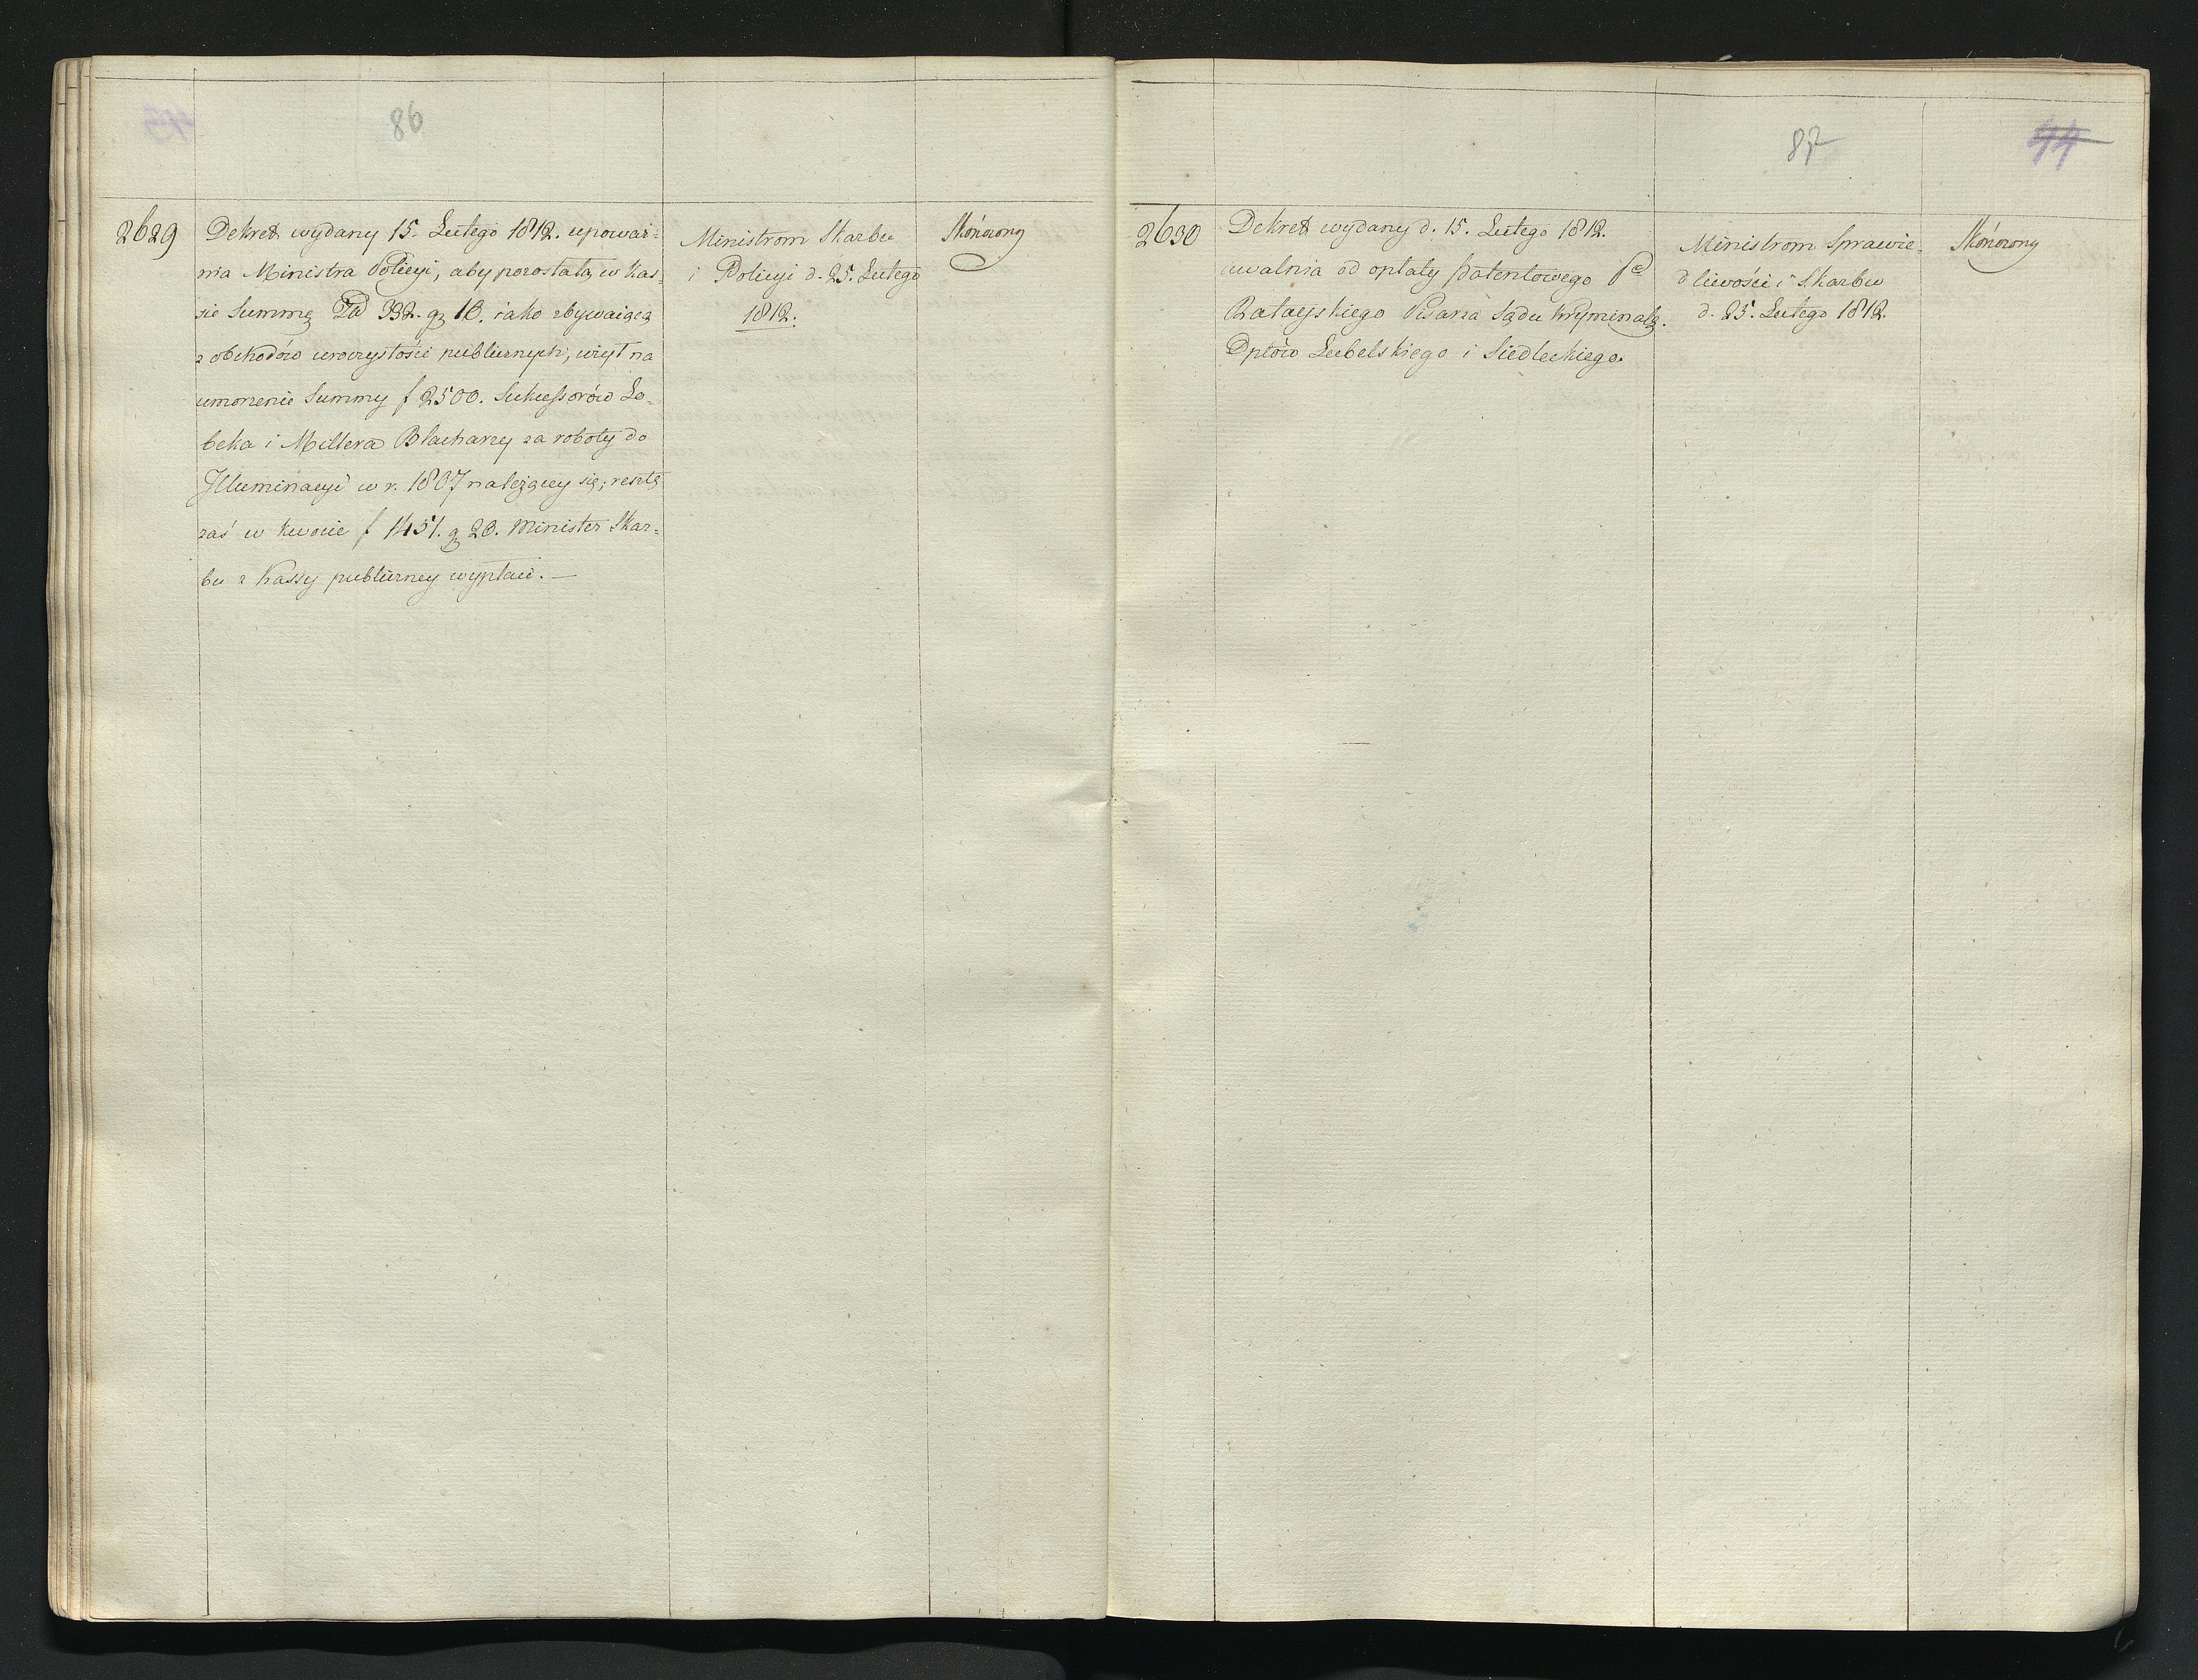 86
2629
Dekret wydany 15. Lutego 1812. upoważ=
nia Ministra Policyi, aby pozostałą w Kas=
sie Summę Zł 332. gr 10. iako zbywaiącą
z obchodów uroczystości publicznych, użył na
umorzenie Summy f 2500. Sukcessorów Lo-
beka i Millera Blacharzy za roboty do
Jlluminacyi w r. 1807 należącey się; resztę
zaś w kwocie f 1451. gr 20. Minister Skar=
bu z Kassy publiczney wypłaci. —
Ministrom Skarbu
i Policyi d. 25. Lutego
1812.
Skończony
87
44
2630
Dekret wydany d. 15. Lutego 1812.
uwalnia od opłaty patentowego
Rataiyskiego Pisarza Sądu Kryminalg.
Dptów Lubelskiego i Siedleckiego.
Ministrom Sprawie-
dliwości i Skarbu
d. 25. Lutego 1812.
Skończony